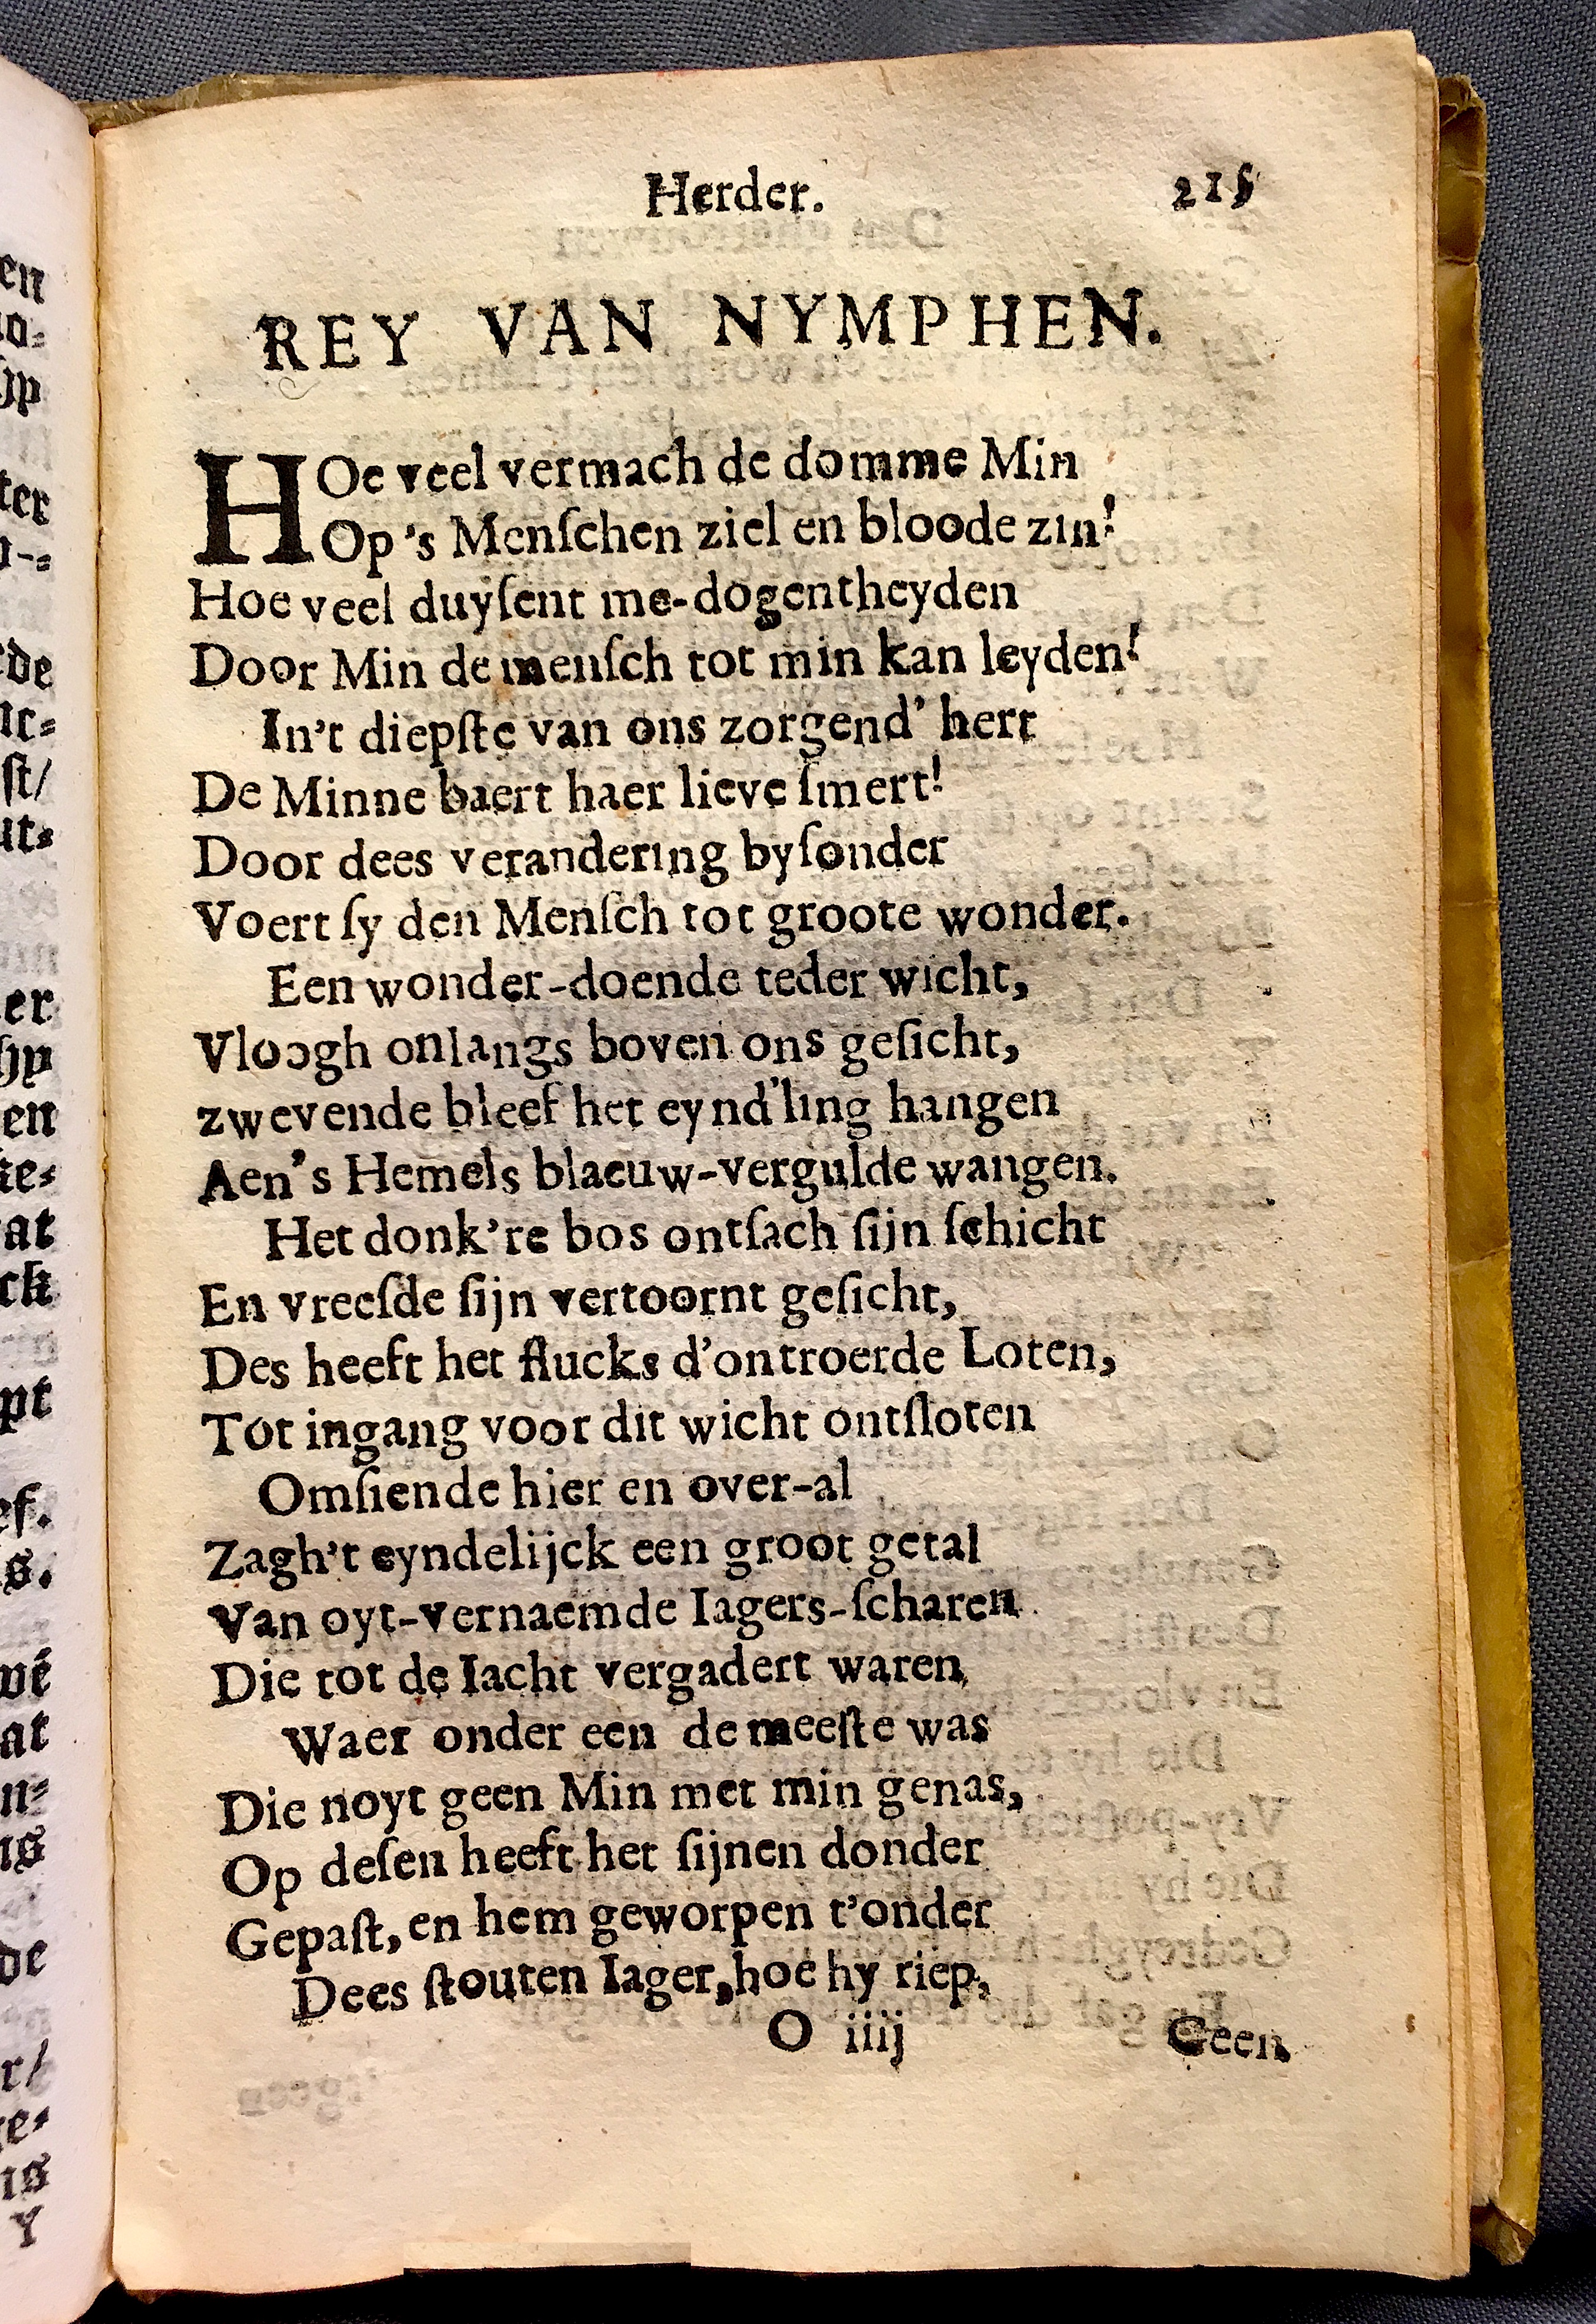 Herder. 215
REY VAN NYMPHEN.
HOe veel vermach de domme Min
Op 's Menſchen ziel en bloode zin!
Hoe veel duyſent me-dogentheyden
Door Min de menſch tot min kan leyden!
In't diepſte van ons zorgend' hert
De Minne baert haer lieve ſmert!
Door dees verandering byſonder
Voert ſy den Menſch tot groote wonder.
Een wonder-doende teder wicht,
Vloogh onlangs boven ons geſicht,
zwevende bleef het eynd'ling hangen
Aen's Hemels blaeuw-vergulde wangen.
Het donk're bos ontſach ſijn ſchicht
En vreeſde ſijn vertoornt geſicht,
Des heeft het flucks d'ontroerde Loten,
Tot ingang voor dit wicht ontſloten
Omſiende hier en over-al
Zagh't eyndelijck een groot getal
Van oyt-vernaemde Iagers-ſcharen
Die tot de Iacht vergadert waren
Waer onder een de meeſte was
Die noyt geen Min met min genas,
Op deſen heeft het ſijnen donder
Gepaſt, en hem geworpen t'onder
Dees ſtouten Iager, hoe hy riep,
O iiij Geen